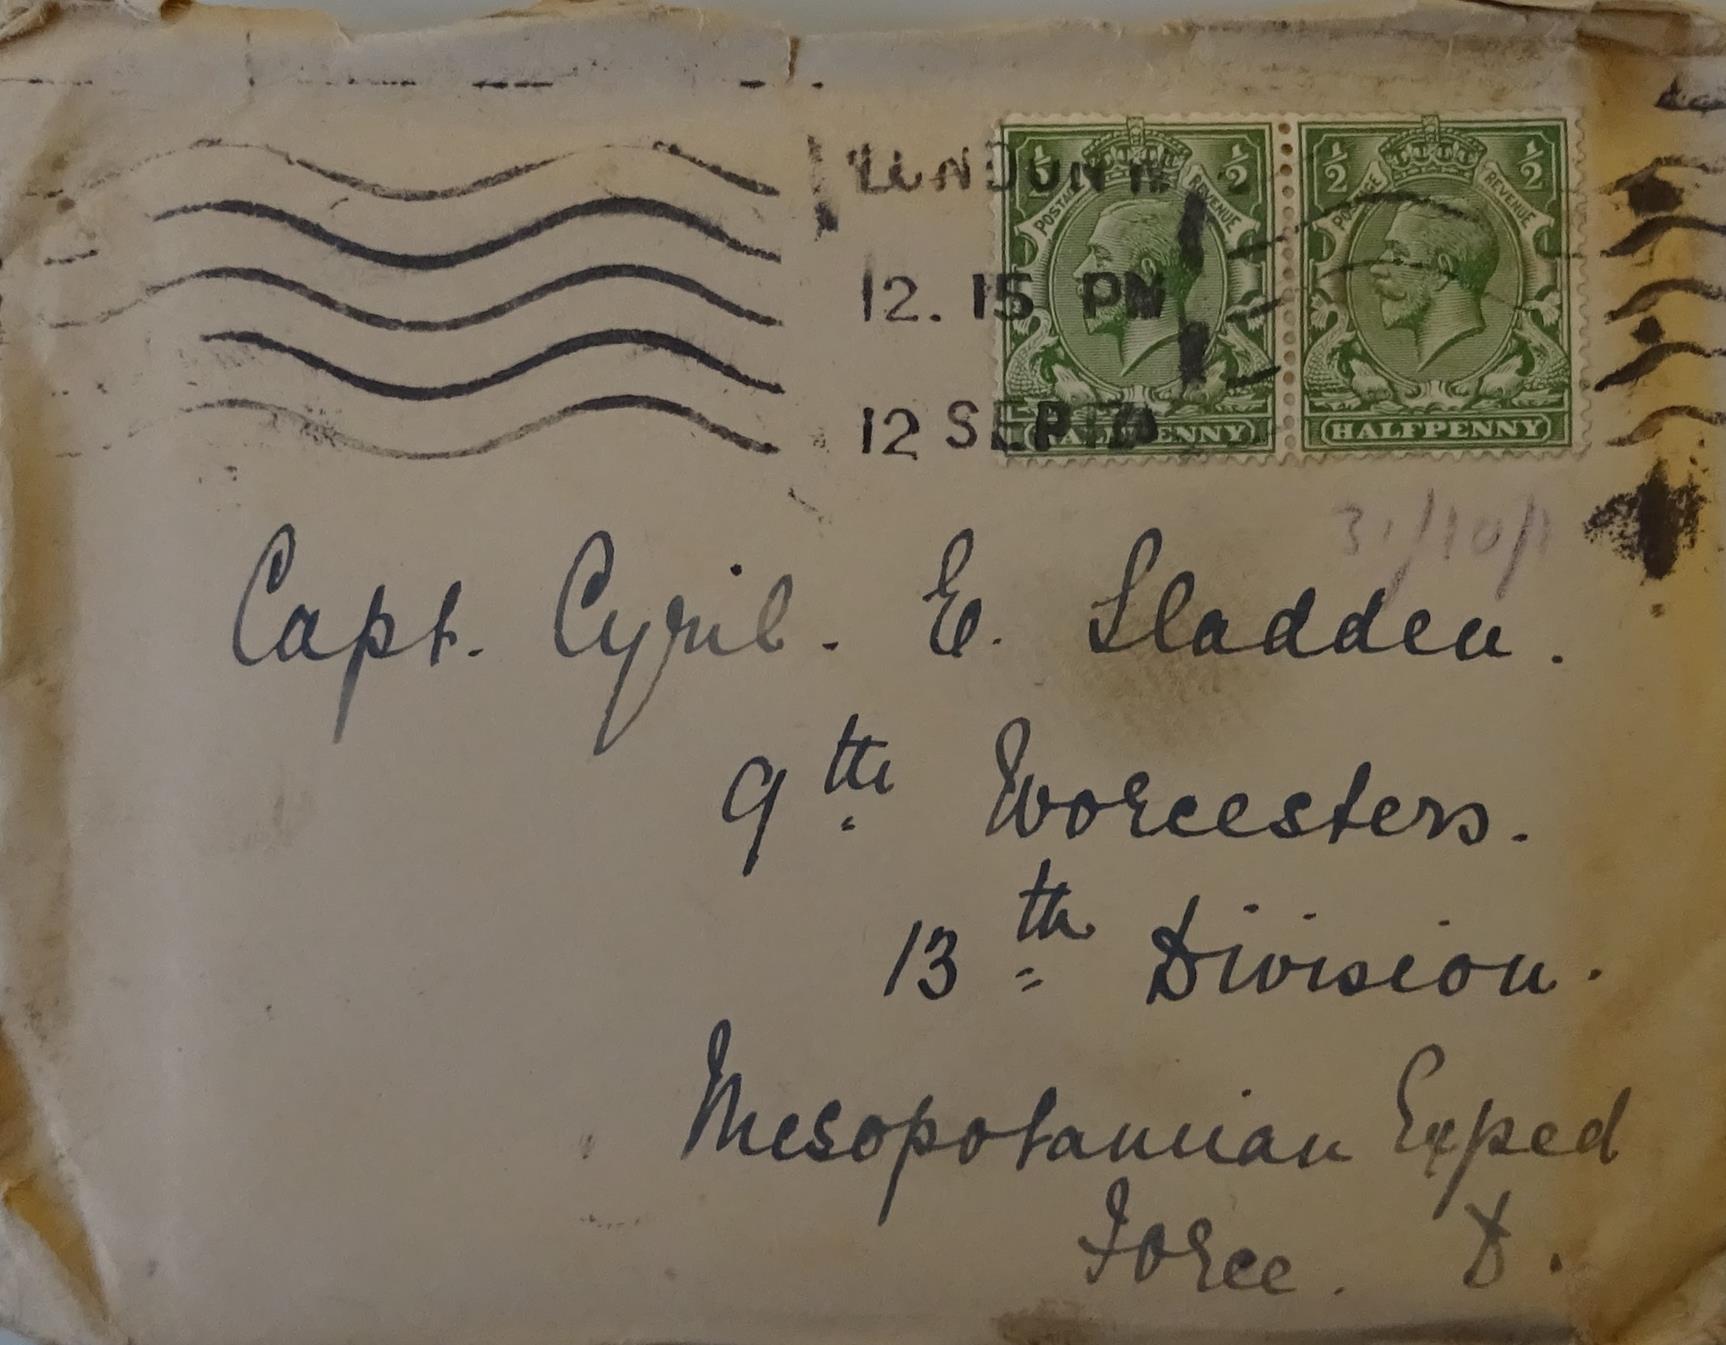 LONDON W
12. 15 PM
12 SEP 17
½ ½
POSTAGE REVENUE
HALFPENNY
½ ½
POSTAGE REVENUE
HALFPENNY
31/10/1
Capt. Cyril. E. Sladden.
9th Worcesters.
13th Division.
Mesopotamian Exped
Force. D.